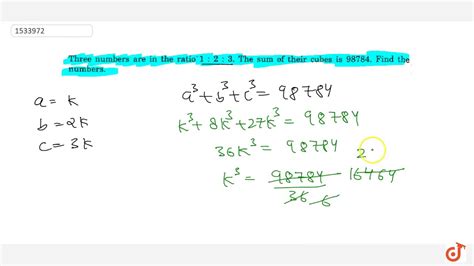 1533972
Three numbers are in the ratio 1 : 2 : 3. The sum of their cubes is 98784. Find the
numbers.
a = k
b = 2k
c = 3k
a³+b³+c³ = 98784
k³+8k³+27k³ = 98784
36k³ = 98784
k³ = 98784/36 6 16464 2